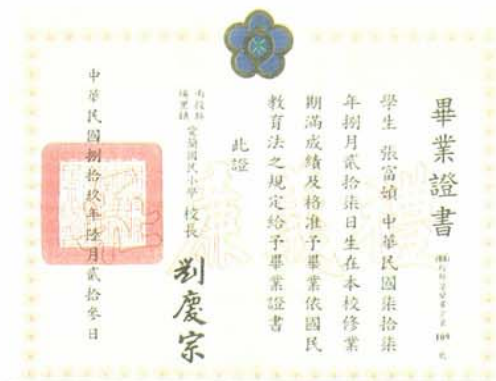 畢業證書
學生 張富 中華民國柒拾柒
年捌月貳拾柒日生在本校修業
期滿成績及格准予畢業依國民
教育法之規定給予畢業證書
此證
南投縣
埔里鎮
愛蘭國民小學 校長 劉慶宗
中華民國捌拾玖年陸月貳拾參日